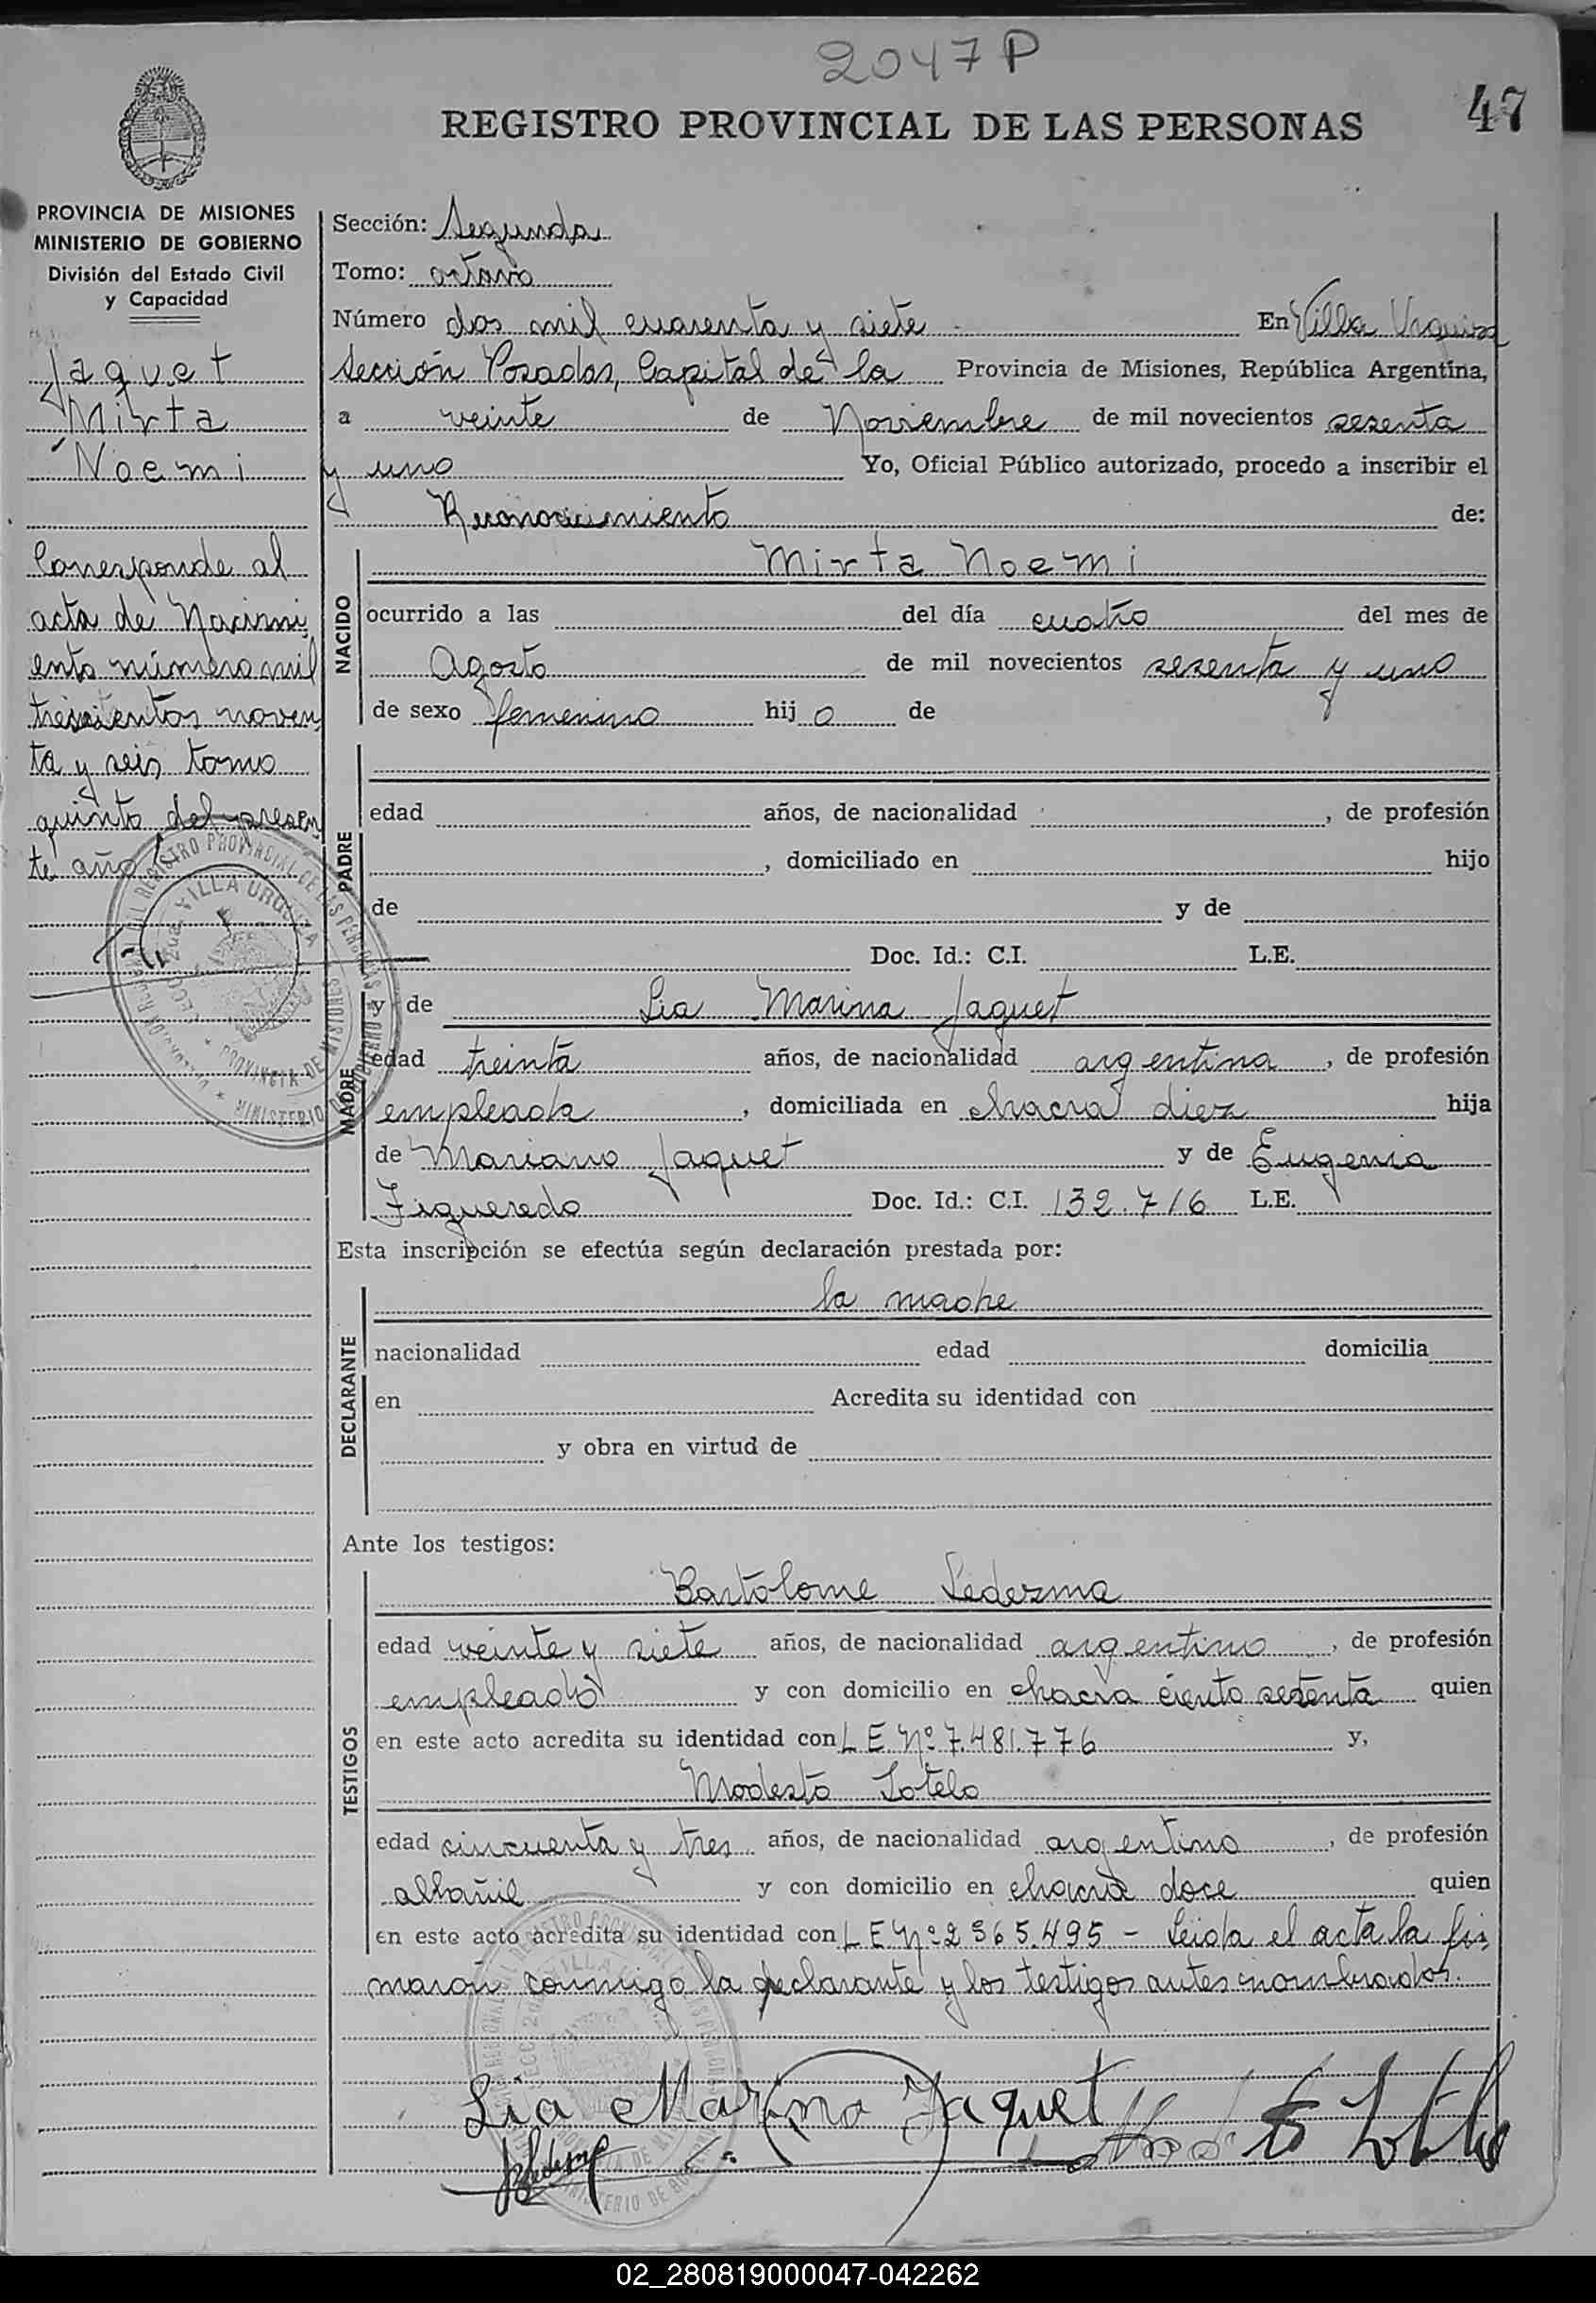 2047 P
47
REGISTRO PROVINCIAL DE LAS PERSONAS
PROVINCIA DE MISIONES
MINISTERIO DE GOBIERNO
División del Estado Civil
y Capacidad
Jaquet
Mirta
Noemi
Corresponde al
acta de Nacimi
ento número mil
trescientos noven
ta y seis tomo
quinto del presen
te año
Sección: Segunda
Tomo: octavo
Número dos mil cuarenta y siete En Villa Urquiza
Sección Posadas, Capital de la Provincia de Misiones, República Argentina,
a veinte de Noviembre de mil novecientos sesenta
y uno Yo, Oficial Público autorizado, procedo a inscribir el
Reconocimiento de:
NACIDO
Mirta Noemi
ocurrido a las del día cuatro del mes de
Agosto de mil novecientos sesenta y uno
de sexo femenino hij o de
PADRE
edad años, de nacionalidad , de profesión
, domiciliado en hijo
de y de
Doc. Id.: C.I. L.E.
MADRE
y de Lia Marina Jaquet
edad treinta años, de nacionalidad argentina , de profesión
empleada , domiciliada en chacra diez hija
de Mariano Jaquet y de Eugenia
Figueredo Doc. Id.: C.I. 132.716 L.E.
Esta inscripción se efectúa según declaración prestada por:
DECLARANTE
la madre
nacionalidad edad domicilia
en Acredita su identidad con
y obra en virtud de
Ante los testigos:
TESTIGOS
Bartolome Ledezma
edad veinte y siete años, de nacionalidad argentino , de profesión
empleado y con domicilio en chacra ciento sesenta quien
en este acto acredita su identidad con L E Nº 7.481.776 y,
Modesto Sotelo
edad cincuenta y tres años, de nacionalidad argentino , de profesión
albañil y con domicilio en chacra doce quien
en este acto acredita su identidad con L E Nº 2 365.495 - Leida el acta la fir
maron conmigo la declarante y los testigos antes nombrados.
Lia Marina Jaquet
02_280819000047-042262